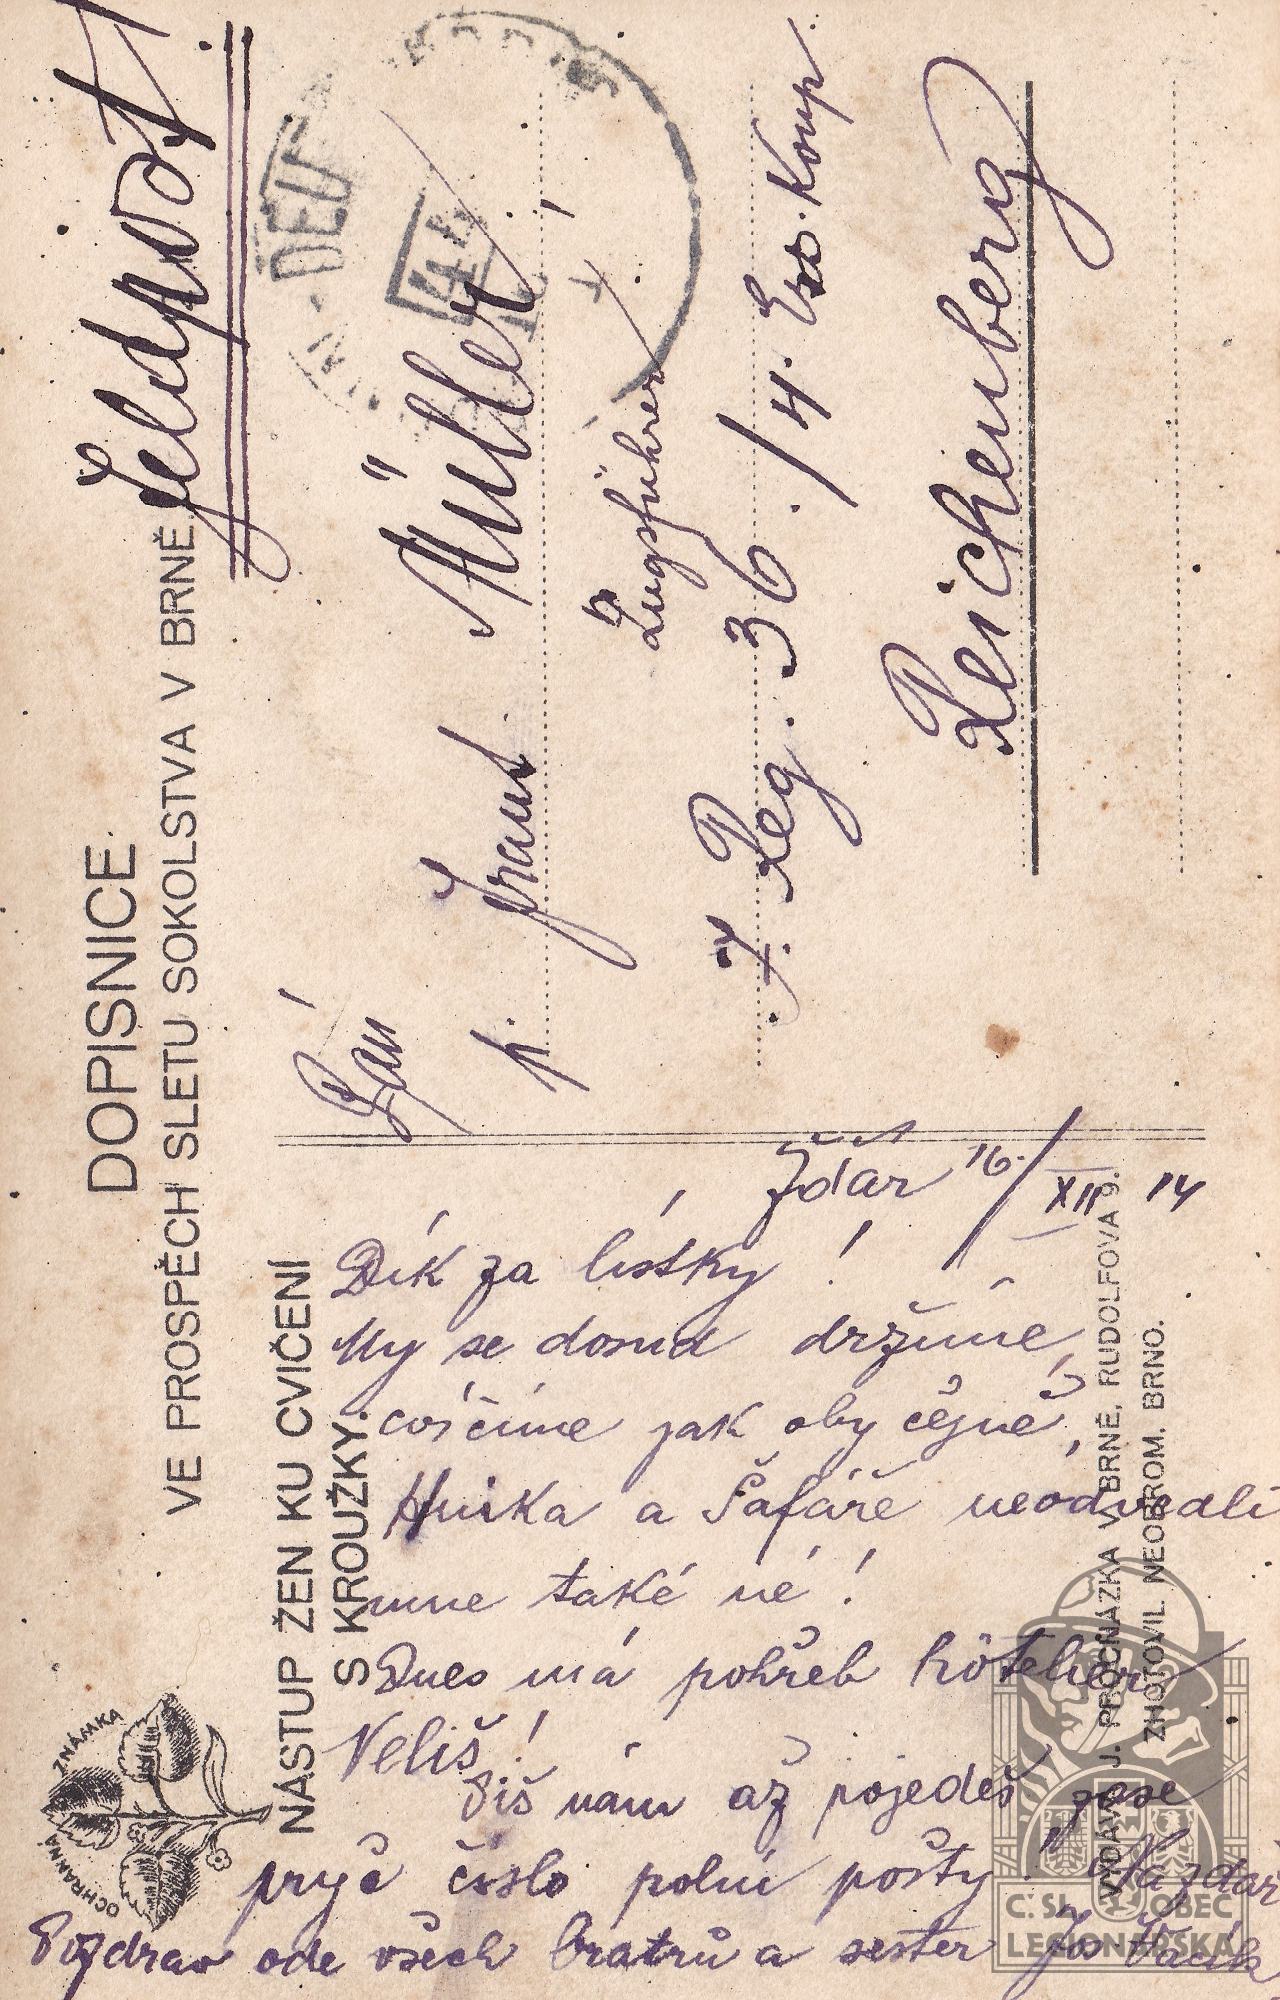 DOPISNICE
VE PROSPĚCH SLETU SOKOLSTVA V BRNĚ.
Feldpost!
OCHRANNÁ ZNÁMKA
NÁSTUP ŽEN KU CVIČENÍ
S KROUŽKY.
Pan
p. Frant. Müller
Zugsführer
I. Reg. 36./4. Ers. Komp.
Reichenberg
44
Žďár 16./XII 14
Dík za lístky!
My se doma držíme,
cvičíme jak oby čejně,
Huska a Šafáře neodvedli
mne také né!
Dnes má pohřeb hôtelier
Veliš!
Piš nám až pojedeš zase
pryč číslo polní pošty! Nazdar
Pozdrav ode všech bratrů a sester Jos
VYDÁV. J. PROCHÁZKA V BRNĚ, RUDOLFOVA 9.
ZHOTOVIL NEOBROM. BRNO.
Č. SL. OBEC
LEGIONÁŘSKÁ